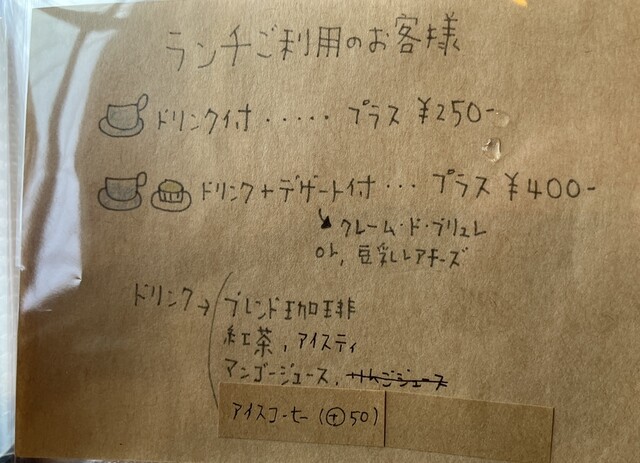 ランチご利用のお客様
ドリンク付 ・・・・・ プラス ¥250-
ドリンク+デザート付 ・・・ プラス ¥400-
↘ クレーム・ド・ブリュレ
or, 豆乳レアチーズ
ドリンク→ ブレンド珈琲
紅茶, アイスティ
マンゴージュース,
アイスコーヒー (⊕50)